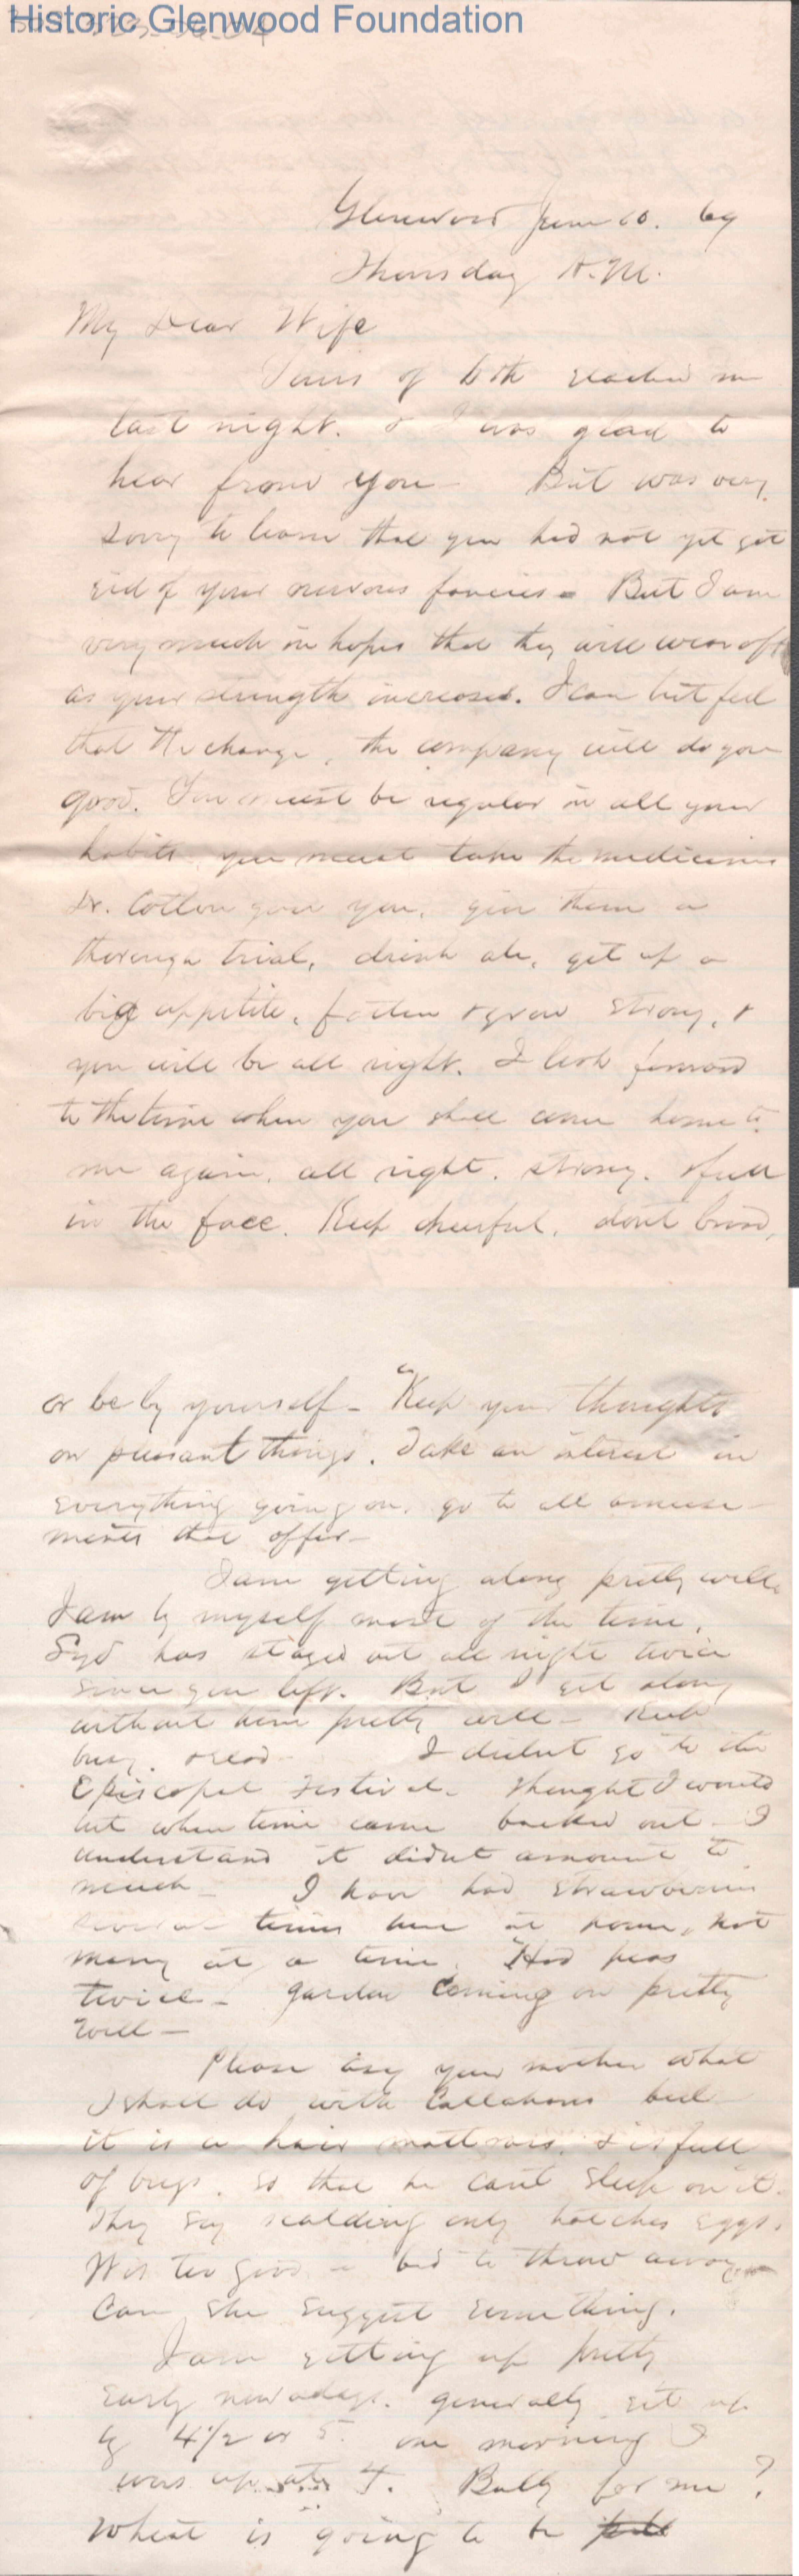 Historic Glenwood Foundation
Glenwood June 10. 69
Thursday A.M.
My Dear Wife
Yours of 6th reached me
last night. & I was glad to
hear from you - But was very
sorry to learn that you had not yet got
rid of your nervous fancies - But I am
very much in hopes that they will wear off
as your strength increases. I can but feel
that the change, the company will do you
good. You must be regular in all your
habits. you must take the medicines
Dr. Cotton gave you, give them a
thorough trial, drink ale, get up a
big appetite, fatten & grow strong, &
you will be all right. I look forward
to the time when you shall come home to
me again, all right. strong. & full
in the face. Keep cheerful, dont brood,
or be by yourself - Keep your thoughts
on pleasant things. Take an interest in
everything going on, go to all amuse-
ments that offer -
I am getting along pretty well.
I am by myself most of the time,
Syd has stayed out all night twice
since you left. But I get along
without him pretty well - Keep
busy. & read - I didnt go to the
Episcopal Festival. thought I would
but when time came backed out - I
understand it didnt amount to
much - I have had strawberries
several times here at home, not
many at a time. Had peas
twice - garden coming on pretty
well -
Please ask your mother what
I shall do with Callahans bed -
it is a hair mattrass, & is full
of bugs. so that he cant sleep on it.
They say scalding only hatches eggs.
It is too good a bed to throw away
Can she suggest something.
I am getting up pretty
early nowadays. generally get up
by 4 1/2 or 5. one morning I
was up at 4. Bully for me?
What is going to be